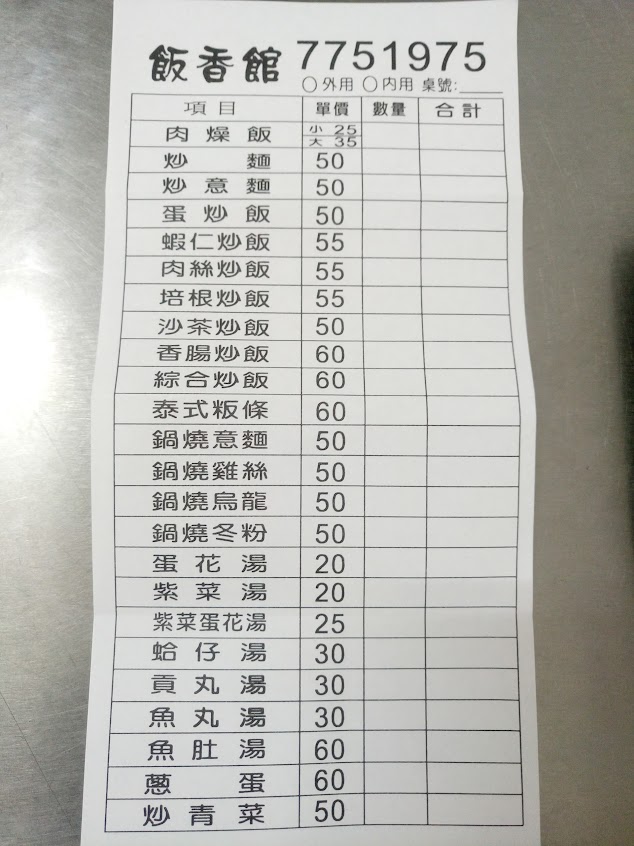 飯香館 7751975
○外用 ○內用 桌號:____
項目 單價 數量 合計
肉燥飯 小 25
大 35
炒麵 50
炒意麵 50
蛋炒飯 50
蝦仁炒飯 55
肉絲炒飯 55
培根炒飯 55
沙茶炒飯 50
香腸炒飯 60
綜合炒飯 60
泰式粄條 60
鍋燒意麵 50
鍋燒雞絲 50
鍋燒烏龍 50
鍋燒冬粉 50
蛋花湯 20
紫菜湯 20
紫菜蛋花湯 25
蛤仔湯 30
貢丸湯 30
魚丸湯 30
魚肚湯 60
蔥蛋 60
炒青菜 50